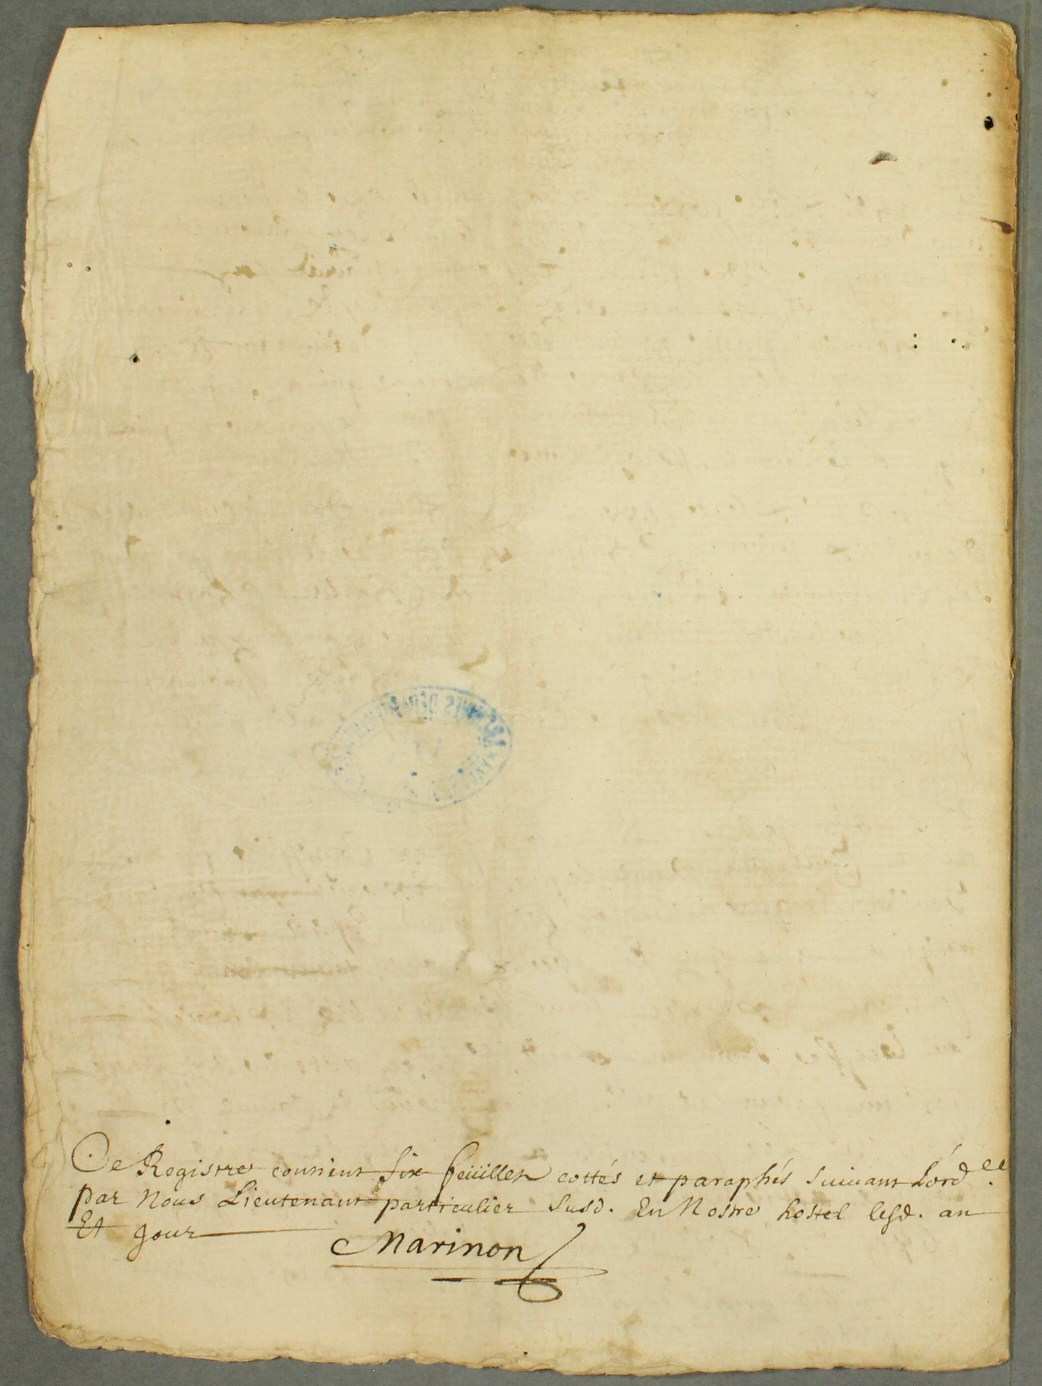 Ce Registre contient six feuillets cottés et paraphés suivant Lord.ce
par Nous Lieutenant particulier susd. En Nostre hostel lesd. an
Et jour
Marinon